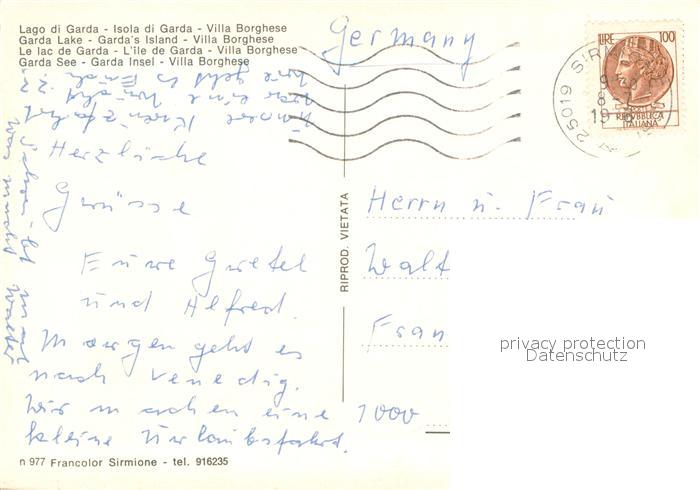 Lago di Garda - Isola di Garda - Villa Borghese
Garda Lake - Garda's Island - Villa Borghese
Le lac de Garda - L'ile de Garda - Villa Borghese
Garda See - Garda Insel - Villa Borghese
Germany
LIRE 100
REPVBBLICA
ITALIANA
25019 SIRM
19
geht es Ende
war eine
Unsere
Herzliche
Grüsse
Eure Gretel
und Alfred.
Morgen geht es
nach Venedig.
Wir machen eine
kleine Urlaubsfahrt.
Was macht Walter
RIPROD. VIETATA
Herrn u. Frau
Walt
Fran
1000
privacy protection
Datenschutz
n 977 Francolor Sirmione - tel. 916235